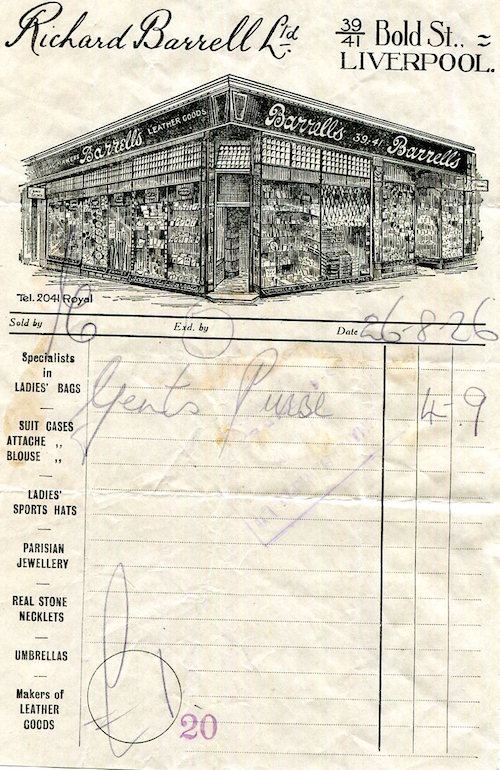 Richard Barrell Ltd
39/41 Bold St.,
LIVERPOOL.
Barrells LEATHER GOODS
Barrells 39-41 Barrells
Tel. 2041 Royal
Sold by Exd. by Date 26-8-26
Gents Purse 4-9
Specialists
in
LADIES' BAGS
SUIT CASES
ATTACHE "
BLOUSE "
LADIES'
SPORTS HATS
PARISIAN
JEWELLERY
REAL STONE
NECKLETS
UMBRELLAS
Makers of
LEATHER
GOODS
20